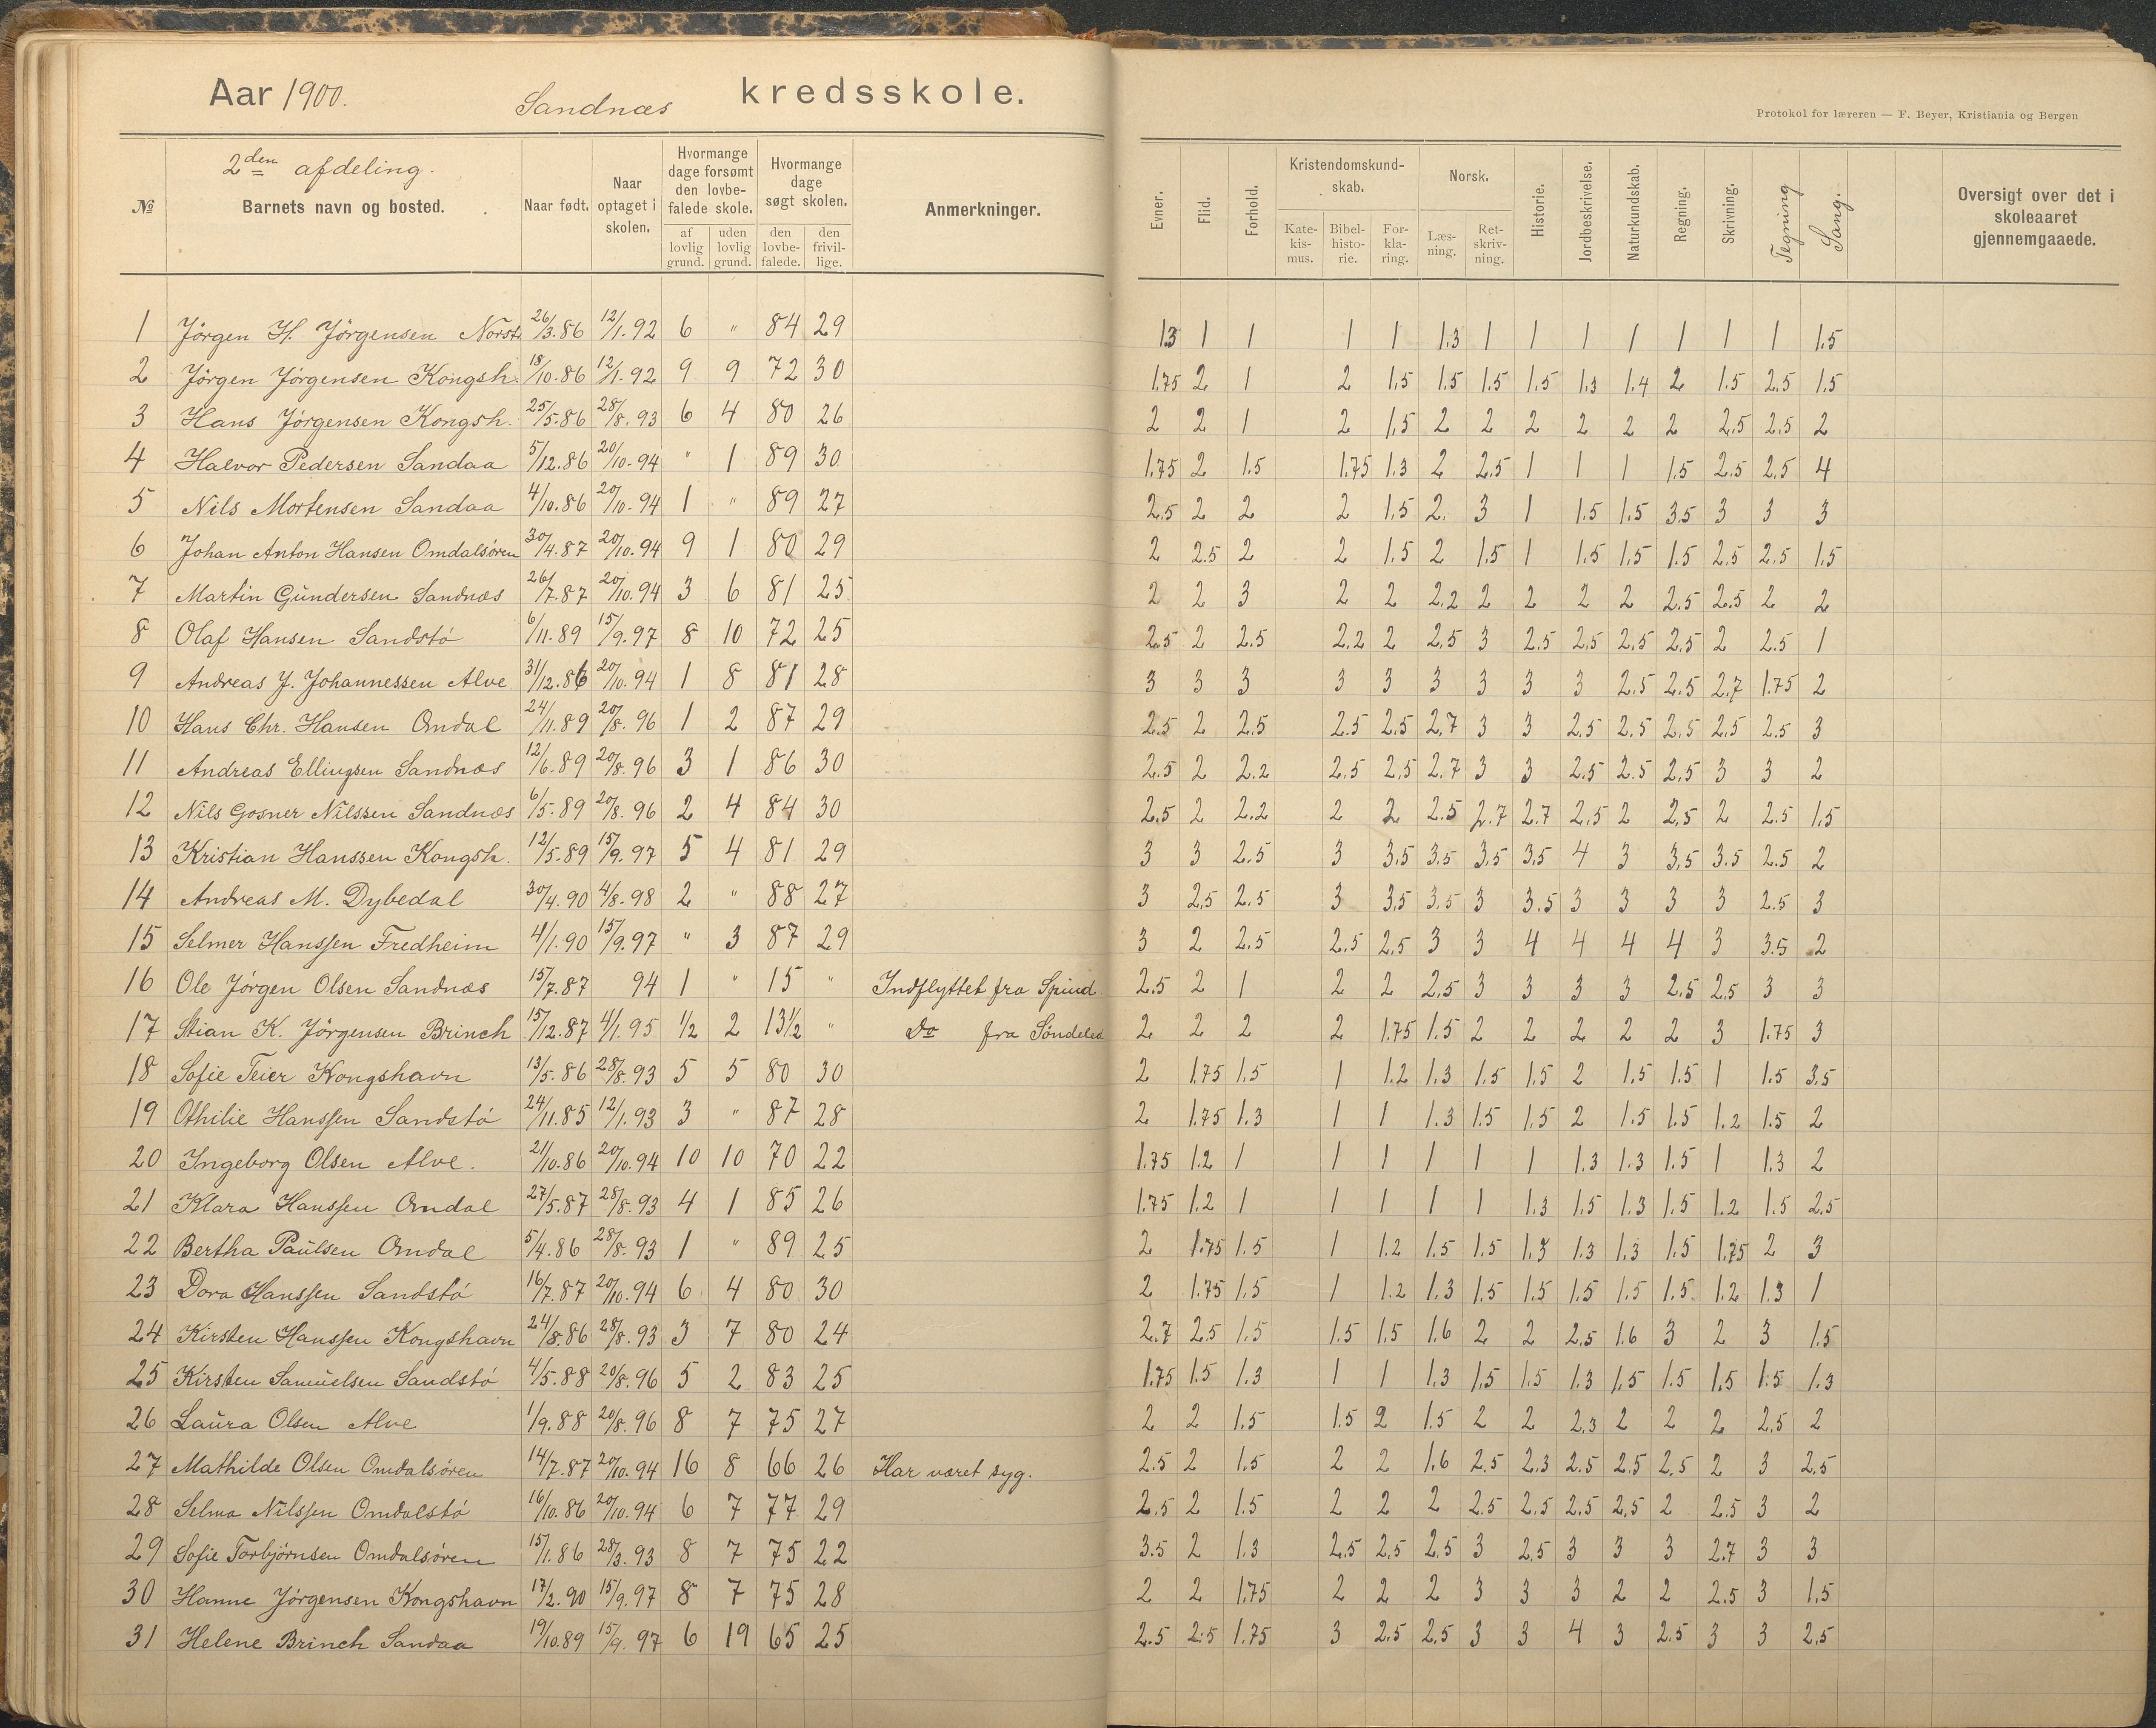 Aar 1900. Sandnæs kredsskole.
Protokol for læreren — F. Beyer, Kristiania og Bergen
№ 2den afdeling. Barnets navn og bosted. Naar født. Naar optaget i skolen. Hvormange dage forsømt den lovbefalede skole. af lovlig grund. uden lovlig grund. Hvormange dage søgt skolen. den lovbefalede. den frivillige. Anmerkninger. Evner. Flid. Forhold. Kristendomskundskab. Katekismus. Bibelhistorie. Forklaring. Norsk. Læsning. Retskrivning. Historie. Jordbeskrivelse. Naturkundskab. Regning. Skrivning. Tegning Sang. Oversigt over det i skoleaaret gjennemgaaede.
1 Jörgen H. Jörgensen 26/3.86 12/1.92 6 " 84 29 1.3 1 1 1 1 1.3 1 1 1 1 1 1 1 1.5
2 Jörgen Jörgensen Kongsh. 18/10.86 12/1.92 9 9 72 30 1.75 2 1 2 1.5 1.5 1.5 1.5 1.3 1.4 2 1.5 2.5 1.5
3 Hans Jörgensen Kongsh. 25/5.86 28/8.93 6 4 80 26 2 2 1 2 1.5 2 2 2 2 2 2 2.5 2.5 2
4 Halvor Pedersen Sandaa 5/12.86 20/10.94 " 1 89 30 1.75 2 1.5 1.75 1.3 2 2.5 1 1 1 1.5 2.5 2.5 4
5 Nils Mortensen Sandaa 4/10.86 20/10.94 1 " 89 27 2.5 2 2 2 1.5 2. 3 1 1.5 1.5 3.5 3 3 3
6 Johan Anton Hansen Omdalsören 30/4.87 20/10.94 9 1 80 29 2 2.5 2 2 1.5 2 1.5 1 1.5 1.5 1.5 2.5 2.5 1.5
7 Martin Gundersen Sandnæs 26/7.87 20/10.94 3 6 81 25 2 2 3 2 2 2.2 2 2 2 2 2.5 2.5 2 2
8 Olaf Hansen Sandstö 6/11.89 15/9.97 8 10 72 25 2.5 2 2.5 2.2 2 2.5 3 2.5 2.5 2.5 2.5 2 2.5 1
9 Andreas J. Johannessen Alve 31/12.86 20/10.94 1 8 81 28 3 3 3 3 3 3 3 3 3 2.5 2.5 2.7 1.75 2
10 Hans Chr. Hansen Omdal 24/11.89 20/8.96 1 2 87 29 2.5 2 2.5 2.5 2.5 2.7 3 3 2.5 2.5 2.5 2.5 2.5 3
11 Andreas Ellingsen Sandnæs 12/6.89 20/8.96 3 1 86 30 2.5 2 2.2 2.5 2.5 2.7 3 3 2.5 2.5 2.5 3 3 2
12 Nils Gosner Nilssen Sandnæs 6/5.89 20/8.96 2 4 84 30 2.5 2 2.2 2 2 2.5 2.7 2.7 2.5 2 2.5 2 2.5 1.5
13 Kristian Hanssen Kongsh. 12/5.89 15/9.97 5 4 81 29 3 3 2.5 3 3.5 3.5 3.5 3.5 4 3 3.5 3.5 2.5 2
14 Andreas M. Dybedal 30/4.90 4/8.98 2 " 88 27 3 2.5 2.5 3 3.5 3.5 3 3.5 3 3 3 3 2.5 3
15 Selmer Hanssen Fredheim 4/1.90 15/9.97 " 3 87 29 3 2 2.5 2.5 2.5 3 3 4 4 4 4 3 3.5 2
16 Ole Jörgen Olsen Sandnæs 15/7.87 94 1 " 15 " Indflyttet fra Spind 2.5 2 1 2 2 2.5 3 3 3 3 2.5 2.5 3 3
17 Stian K. Jörgensen Brinch 15/12.87 4/1.95 1/2 2 13 1/2 " Do fra Söndeled 2 2 2 2 1.75 1.5 2 2 2 2 2 3 1.75 3
18 Sofie Teier Kongshavn 13/5.86 28/8.93 5 5 80 30 2 1.75 1.5 1 1.2 1.3 1.5 1.5 2 1.5 1.5 1 1.5 3.5
19 Othilie Hanssen Sandstö 24/11.85 12/1.93 3 " 87 28 2 1.75 1.3 1 1 1.3 1.5 1.5 2 1.5 1.5 1.2 1.5 2
20 Ingeborg Olsen Alve. 21/10.86 20/10.94 10 10 70 22 1.75 1.2 1 1 1 1 1 1 1.3 1.3 1.5 1 1.3 2
21 Klara Hanssen Omdal 27/5.87 28/8.93 4 1 85 26 1.75 1.2 1 1 1 1 1 1.3 1.5 1.3 1.5 1.2 1.5 2.5
22 Bertha Paulsen Omdal 5/4.86 28/8.93 1 " 89 25 2 1.75 1.5 1 1.2 1.5 1.5 1.3 1.3 1.3 1.5 1.75 2 3
23 Dora Hanssen Sandstö 16/7.87 20/10.94 6 4 80 30 2 1.75 1.5 1 1.2 1.3 1.5 1.5 1.5 1.5 1.5 1.2 1.3 1
24 Kirsten Hanssen Kongshavn 24/8.86 28/8.93 3 7 80 24 2.7 2.5 1.5 1.5 1.5 1.6 2 2 2.5 1.6 3 2 3 1.5
25 Kirsten Samuelsen Sandstö 4/5.88 20/8.96 5 2 83 25 1.75 1.5 1.3 1 1 1.3 1.5 1.5 1.3 1.5 1.5 1.5 1.5 1.3
26 Laura Olsen Alve 1/9.88 20/8.96 8 7 75 27 2 2 1.5 1.5 2 1.5 2 2 2.3 2 2 2 2.5 2
27 Mathilde Olsen Omdalsören 14/7.87 20/10.94 16 8 66 26 Har været syg. 2.5 2 1.5 2 2 1.6 2.5 2.3 2.5 2.5 2.5 2 3 2.5
28 Selma Nilssen Omdalstö 16/10.86 20/10.94 6 7 77 29 2.5 2 1.5 2 2 2 2.5 2.5 2.5 2.5 2 2.5 3 2
29 Sofie Torbjörnsen Omdalsören 15/1.86 28/3.93 8 7 75 22 3.5 2 1.3 2.5 2.5 2.5 3 2.5 3 3 3 2.7 3 3
30 Hanne Jörgensen Kongshavn 17/2.90 15/9.97 8 7 75 28 2 2 1.75 2 2 2 3 3 3 2 2 2.5 3 1.5
31 Helene Brinch Sandaa 19/10.89 15/9.97 6 19 65 25 2.5 2.5 1.75 3 2.5 2.5 3 3 4 3 2.5 3 3 2.5